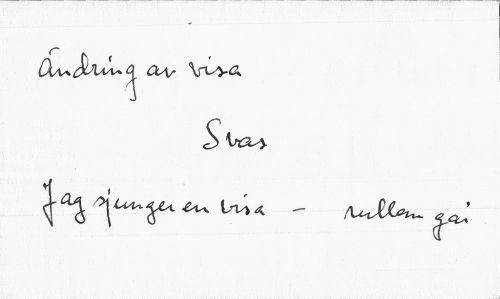 Ändring av visa
Svas
Jag sjunger en visa – rullan gå